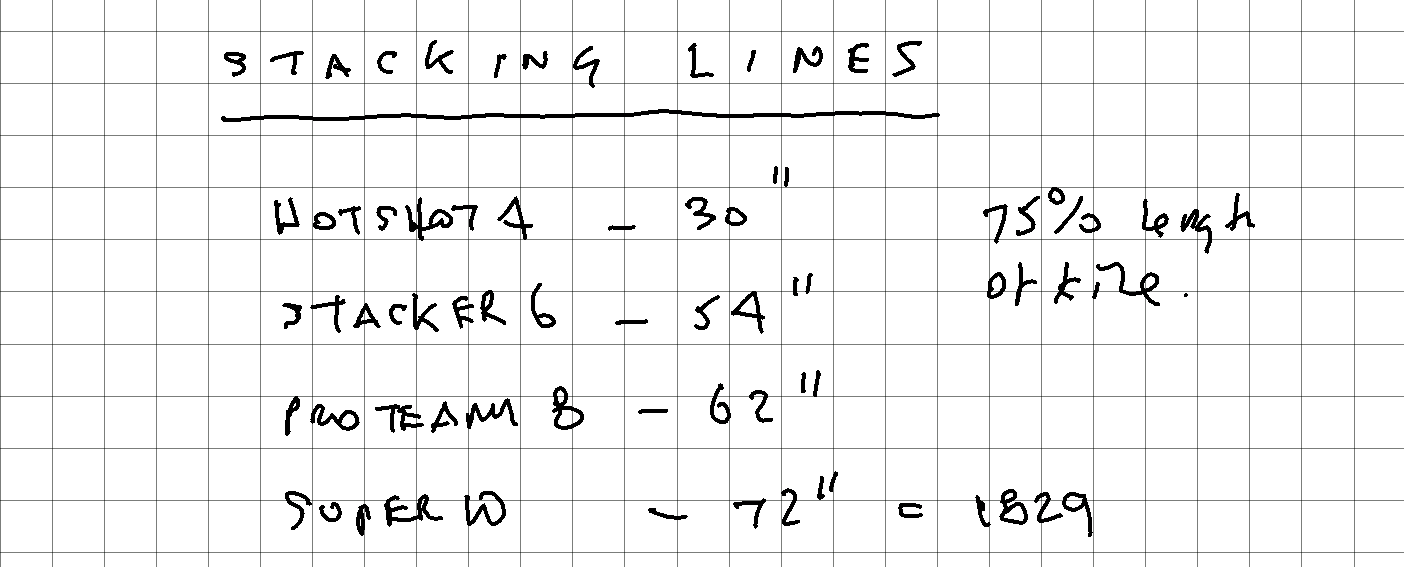 STACKING LINES
HOTSHOT 4 - 30"
75% length
of kite.
STACKER 6 - 54"
PRO TEAM 8 - 62"
SUPER 10 - 72" = 1829